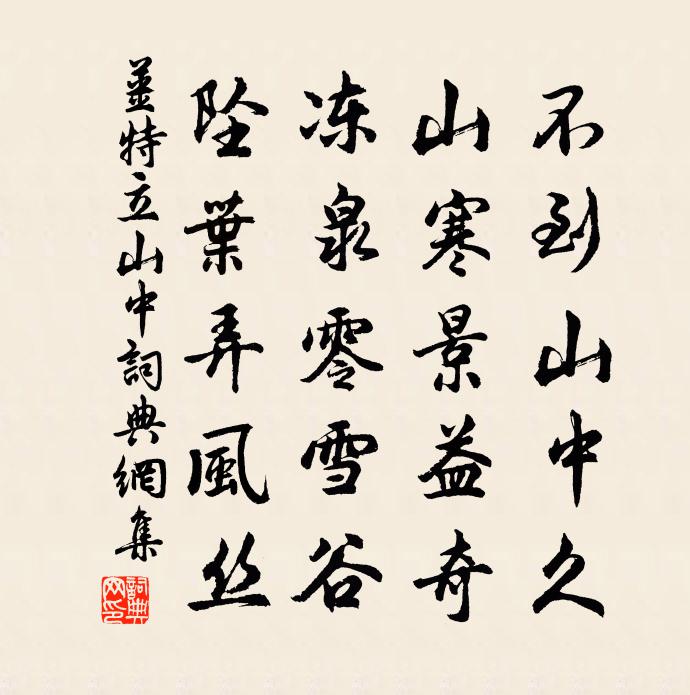 不到山中久
山寒景益奇
冻泉零雪谷
坠葉弄風丝
姜特立山中詞典網集
詞典网印